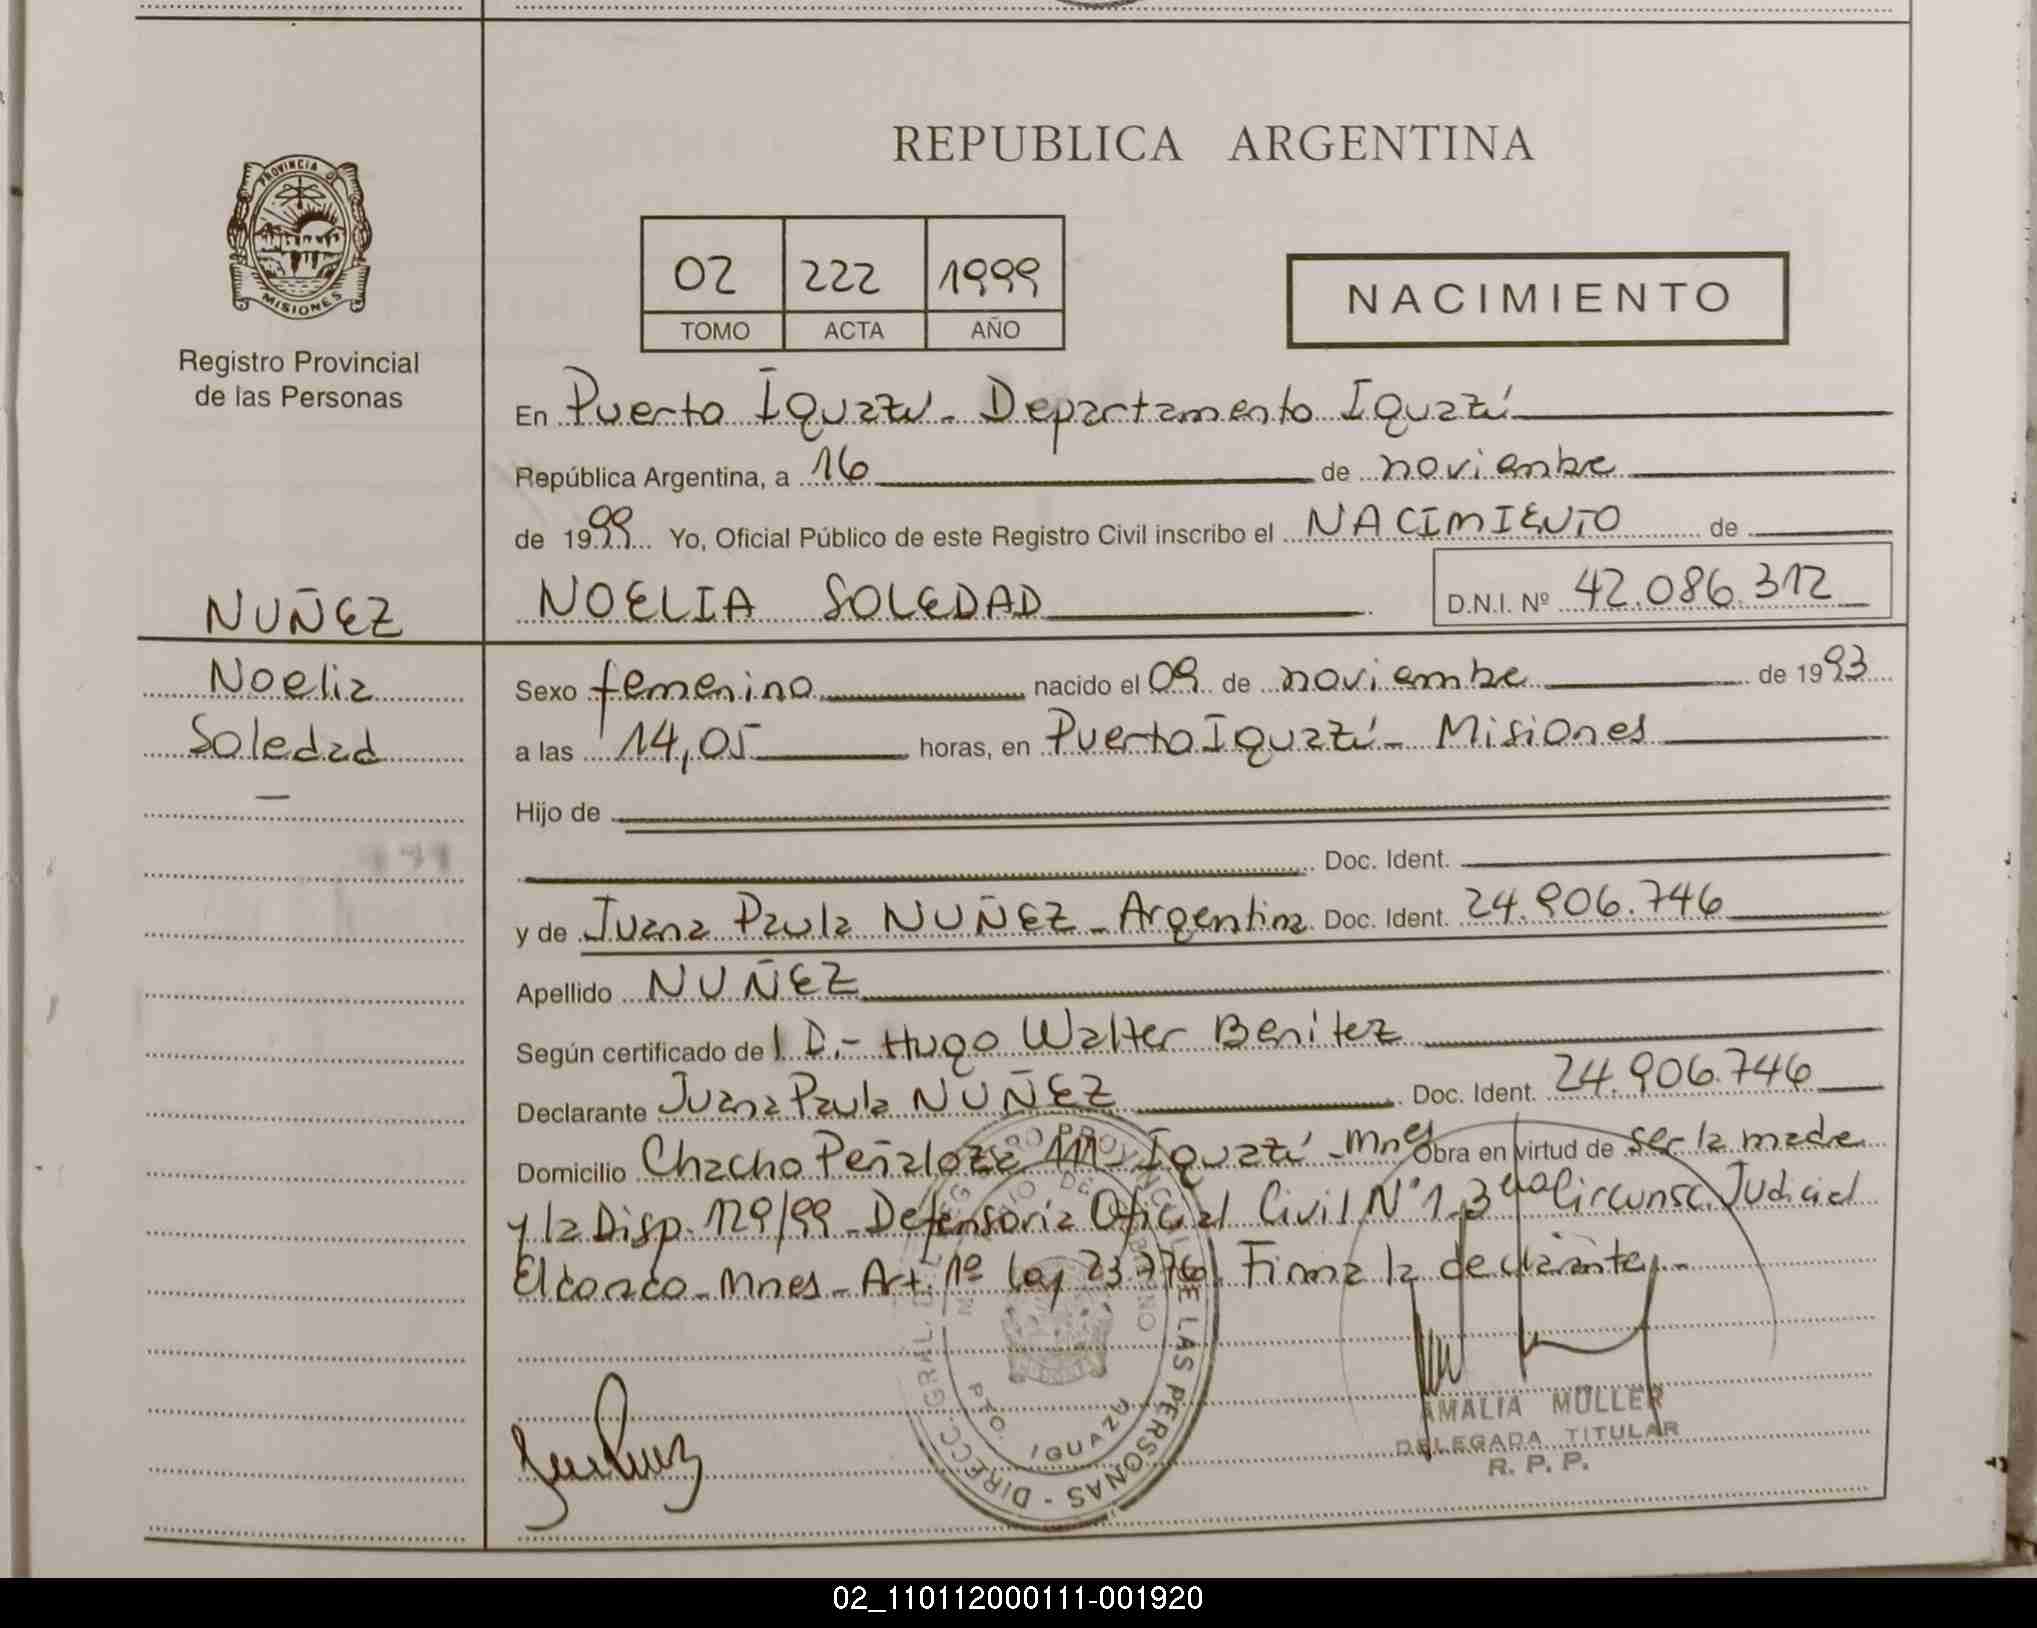 REPUBLICA ARGENTINA
PROVINCIA DE
MISIONES
Registro Provincial
de las Personas
02 222 1999
TOMO ACTA AÑO
NACIMIENTO
En Puerto Iguazú - Departamento Iguazú
República Argentina, a 16 de noviembre
de 1999 Yo, Oficial Público de este Registro Civil inscribo el NACIMIENTO de
NUÑEZ
NOELIA SOLEDAD D.N.I. Nº 42.086.312
Noelia
Soledad
Sexo femenino nacido el 09 de noviembre de 1993
a las 14,05 horas, en Puerto Iguazú - Misiones
Hijo de
Doc. Ident.
y de Juana Paula NUÑEZ - Argentina Doc. Ident. 24.906.746
Apellido NUÑEZ
Según certificado de I.D.- Hugo Walter Benitez
Declarante Juana Paula NUÑEZ Doc. Ident. 24.906.746
Domicilio Chacho Peñaloza Iguazú - Mnes Obra en virtud de ser la madre
y la Disp. 129/99 - Defensoría Oficial Civil N°1 - 3 Circunsc. Judicial
Eldorado - Mnes - Art. 1º ley 23.776 Firma la declarante.-
DIRECC. GRAL. DE LAS PERSONAS
PTO. IGUAZU
AMALIA MÜLLER
DELEGADA TITULAR
R. P. P.
02_110112000111-001920